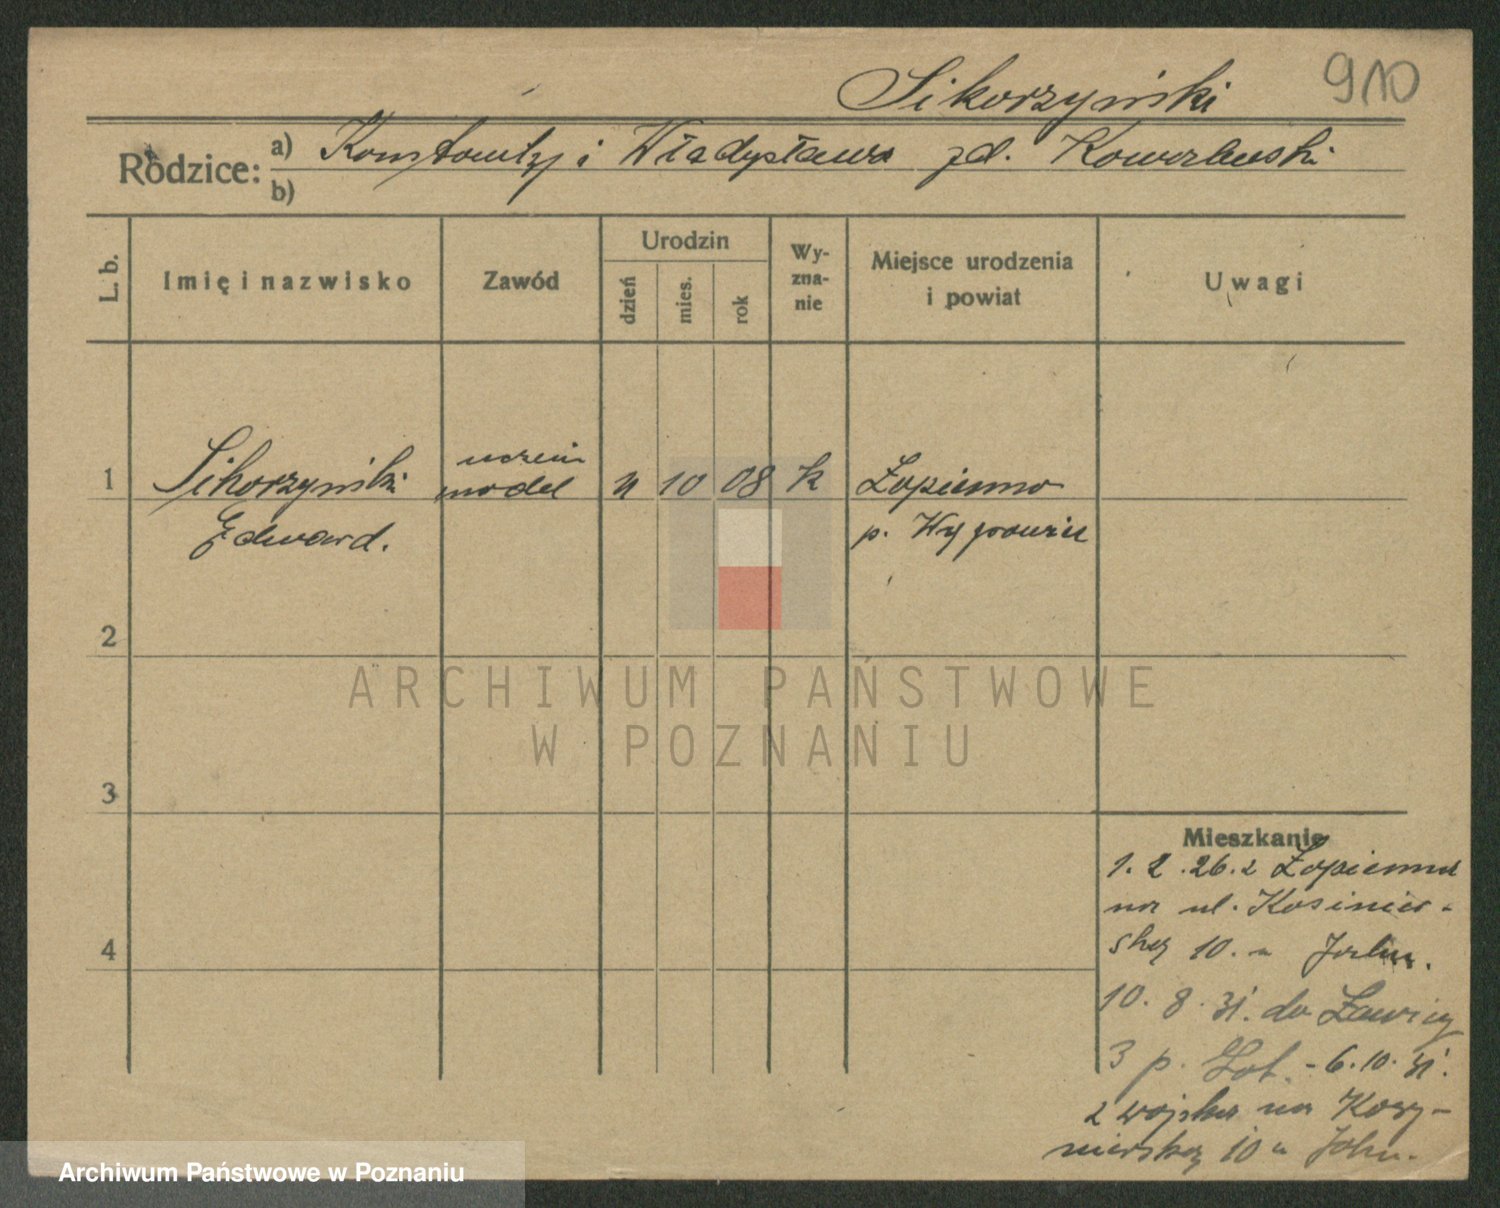 Sikorzyński 910
Rodzice: a) Konstanty i Władysława zd. Kowalewski
b)
L. b. Imię i nazwisko Zawód Urodzin dzień mies. rok Wyznanie Miejsce urodzenia i powiat Uwagi
1 Sikorzyński uczeń model 4 10 08 k Łopienno
Edward. p. Wągrowiec
2
ARCHIWUM PAŃSTWOWE
W POZNANIU
3
Mieszkanie
1. 2. 26. z Łopienna
na ul. Kosinier-
ską 10. u
4
10. 8. 31. do Ławicy
3 p. Lot. - 6. 10. 31.
z wojska na Kosy-
nierską 10 u
Archiwum Państwowe w Poznaniu